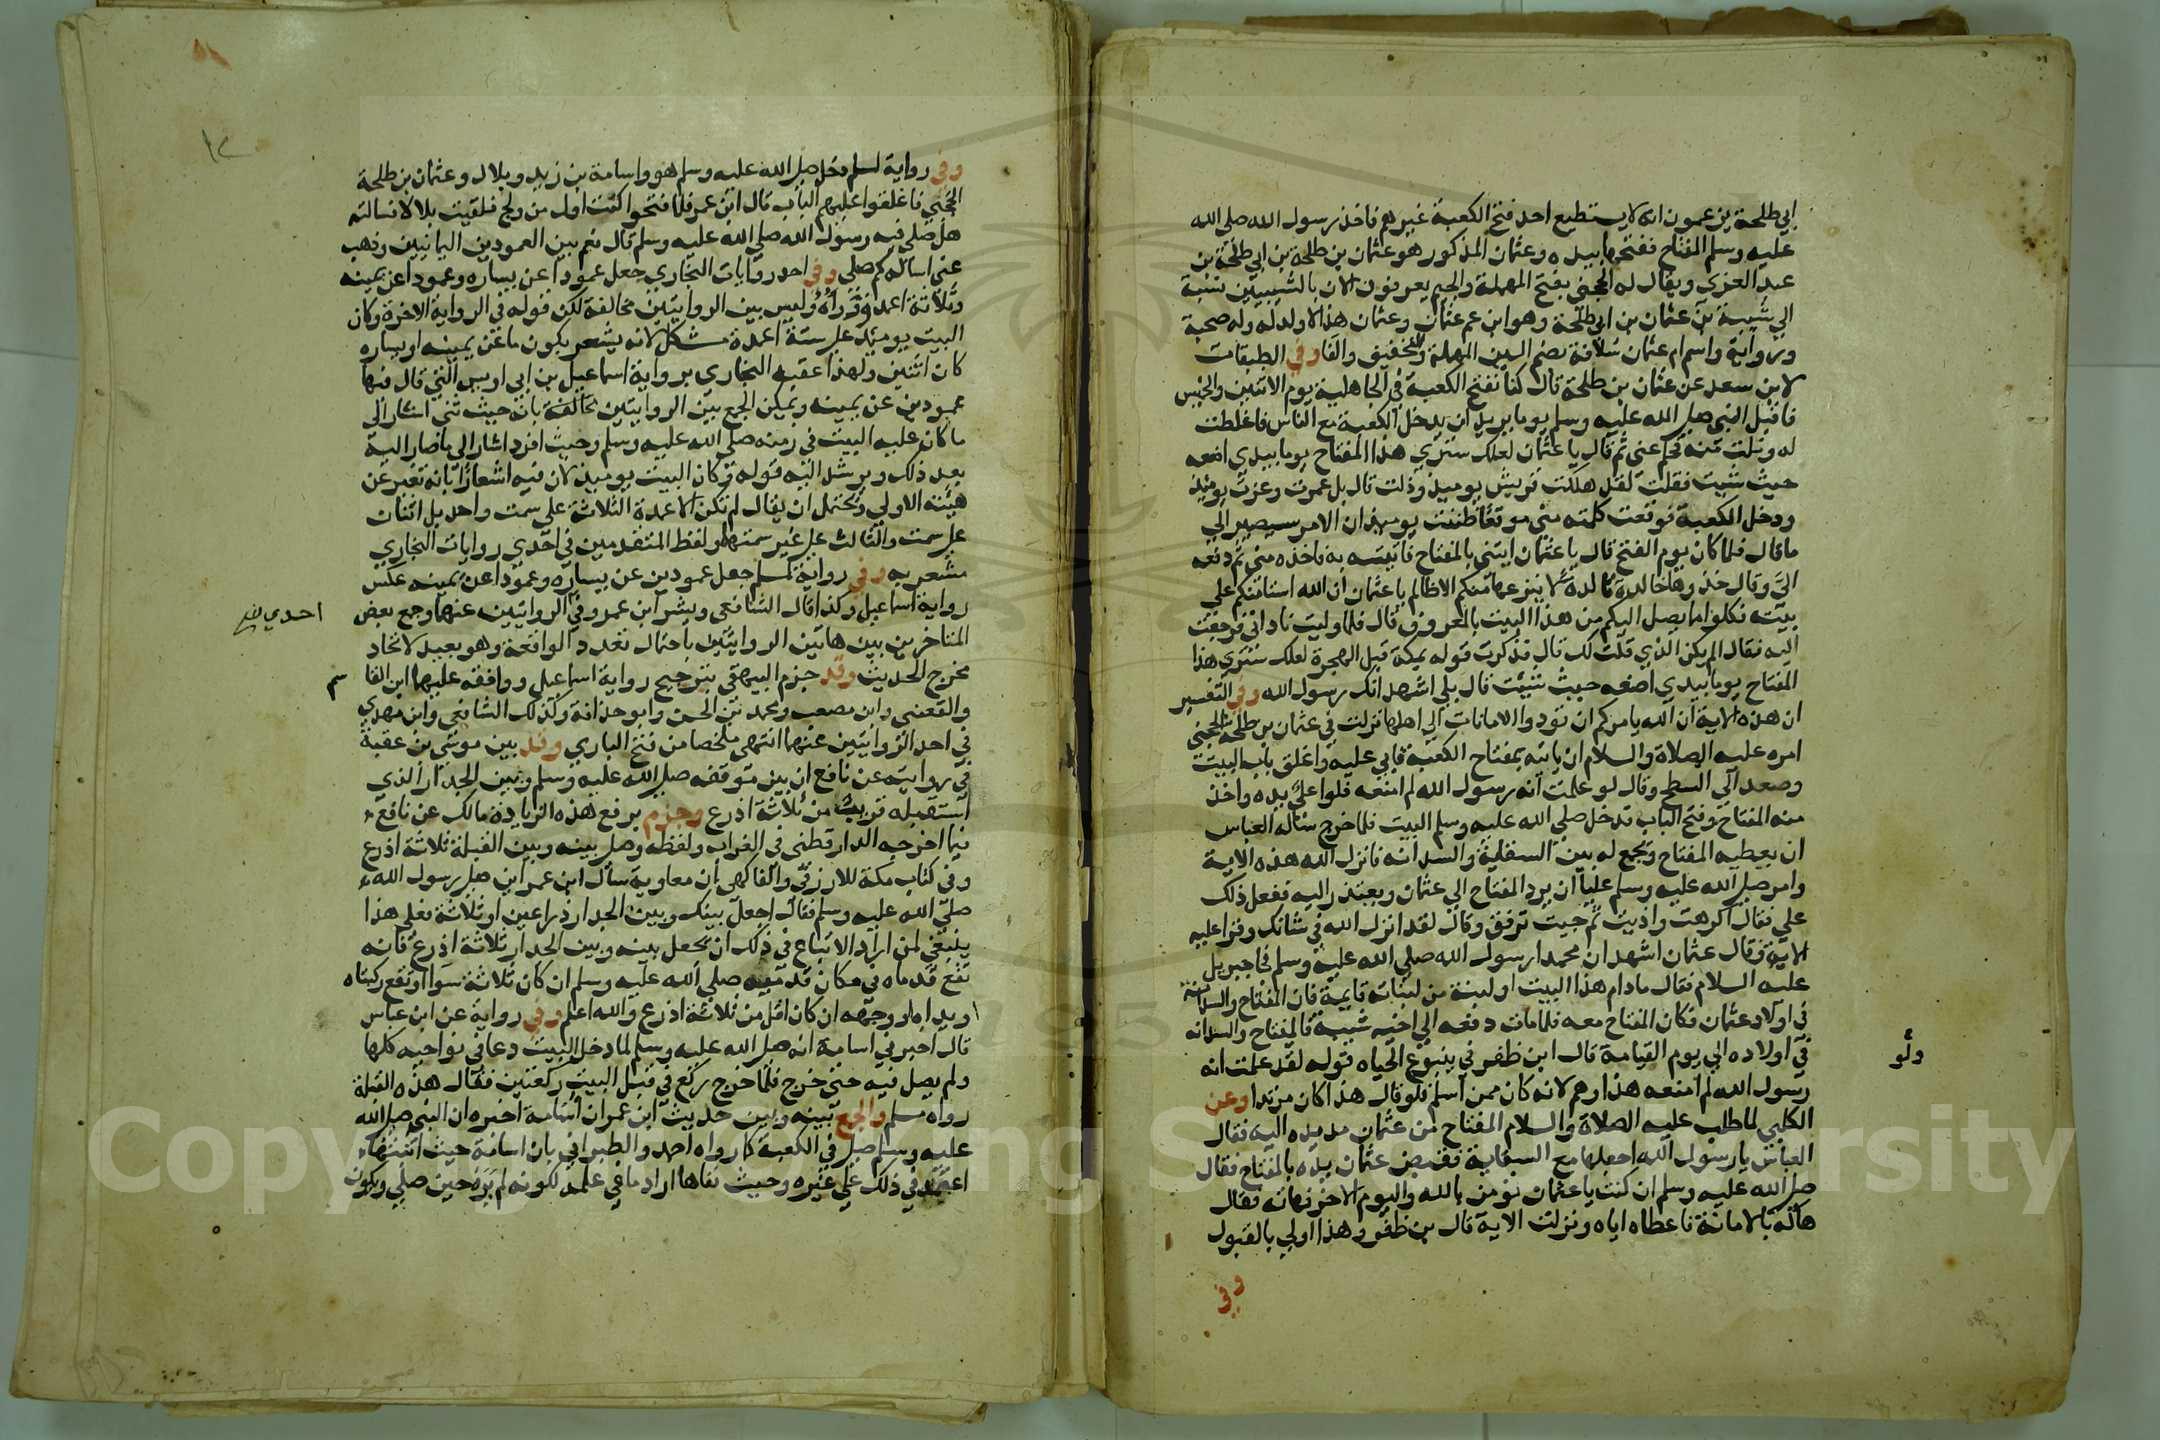 ابي طلحة يزعمون انه لا يستطيع احد فتح الكعبة غيرهم فاخذ رسول الله صلى الله
عليه وسلم المفتاح ففتحها بيده وعثمان المذكور هو عثمان بن طلحة بن ابي طلحة بن
عبد العزي ويقال له الحجبي بفتح المهملة والجيم يعرفون الان بالشيبيين نسبة
الي شيبة بن عثمان بن ابي طلحة وهو ابن عم عثمان وعثمان هذا لا ولد له وله صحبة
ورواية واسم ام عثمان سلافة بضم السين المهملة والتخفيف والفا وفي الطبقات
لابن سعد عن عثمان بن طلحة قال كنا نفتح الكعبة في الجاهلية يوم الاثنين والخميس
فاقبل النبي صلى الله عليه وسلم يوما يريد ان يدخل الكعبة مع الناس فاغلظت
له ونلت منه فحلم عني ثم قال يا عثمان لعلك ستري هذا المفتاح يوما بيدي اضعه
حيث شيت فقلت لقد هلكت قريش يوميذ وذلت قال بل عمرت وعزت يوميذ
ودخل الكعبة فوقعت كلمته مني موقعا ظننت يوميذ ان الامر سيصير الي
ما قال فلما كان يوم الفتح قال يا عثمان ايتني بالمفتاح فاتيته به فاخذه مني ثم دفعه
الي وقال خذوها خالدة تالدة لا ينزعها منكم الا ظالم يا عثمان ان الله استامنكم علي
بيته فكلوا مما يصل اليكم من هذا البيت بالمعروف قال فلما وليت ناداني فرجعت
اليه فقال الم يكن الذي قلت لك قال فذكرت قوله بمكة قبل الهجرة لعلك ستري هذا
المفتاح يوما بيدي اضعه حيث شيت قال بلي اشهد انك رسول الله وفي التفسير
ان هذه الاية ان الله يامركم ان تودوا الامانات الي اهلها نزلت في عثمان بن طلحة الحجبي
امره عليه الصلاة والسلام ان ياته بمفتاح الكعبة فابي عليه واغلق باب البيت
وصعد الي السطح وقال لو علمت انه رسول الله لم امنعه فلوا علي يده واخذ
منه المفتاح وفتح الباب فدخل صلى الله عليه وسلم البيت فلما خرج ساله العباس
ان يعطيه المفتاح ويجمع له بين السقاية والسدانه فانزل الله هذه الاية
وامر صلى الله عليه وسلم عليا ان يرد المفتاح الي عثمان ويعتذر اليه ففعل ذلك
علي فقال اكرهت واذيت ثم جيت ترفق وقال لقد انزل الله في شانك وقرا عليه
الاية فقال عثمان اشهد ان محمدا رسول الله صلى الله عليه وسلم فجا جبريل
عليه السلام فقال مادام هذا البيت او لبنة من لبناته قايمة فان المفتاح والسدانة
في اولاد عثمان فكان المفتاح معه فلما مات دفعه الي اخيه شيبة فالمفتاح والسدانه
في اولاده الي يوم القيامة قال ابن ظفر في ينبوع الحياه قوله لقد علمت انه
ولو
رسول الله لم امنعه هذا وهم لانه كان ممن اسلم فلو قال هذا كان مرتدا وعن
الكلبي لما طلب عليه الصلاة والسلام المفتاح من عثمان مد يده اليه فقال
العباس يا رسول الله اجعلها مع السقاية فقبض عثمان يده بالمفتاح فقال
صلى الله عليه وسلم ان كنت يا عثمان تومن بالله واليوم الاخر فهاته فقال
هاكه بالامانة فاعطاه اياه ونزلت الاية قال بن ظفر وهذا اولي بالقبول
وفي
وفي رواية لمسلم دخل صلى الله عليه وسلم هو واسامة بن زيد وبلال وعثمان بن طلحة
الحجبي فاغلقوا عليهم الباب قال ابن عمر فلما فتحوا كنت اول من ولج فلقيت بلالا فسالته
هل صلي فيه رسول الله صلى الله عليه وسلم قال نعم بين العمودين اليمانيين وذهب
عني اساله كم صلي وفي احد روايات البخاري جعل عمودا عن يساره وعمودا عن يمينه
وثلاثة اعمدة وراه وليس بين الروايتين مخالفة لكن قوله في الرواية الاخرة وكان
البيت يوميذ علي ستة اعمدة مشكل لانه يشعر بكون ما عن يمينه او يساره
كان اثنين ولهذا عقبه البخاري برواية اسماعيل بن ابي اويس التي قال فيها
عمودين عن يمينه ويمكن الجمع بين الروايتين بانه حيث ثني اشار الي
ما كان عليه البيت في زمنه صلى الله عليه وسلم وحيث افرد اشار الي ما صار اليه
بعد ذلك ويرشد اليه قوله وكان البيت يوميذ لان فيه اشعارا بانه تغير عن
هيئته الاولي ويحتمل ان يقال لم تكن الاعمدة الثلاثة علي سمت واحد بل اثنان
علي سمت والثالث علي غير سمتهما ولفظ المتقدمين في احدي روايات البخاري
مشعر به وفي رواية لمسلم جعل عمودين عن يساره وعمودا عن يمينه عكس
رواية اسماعيل وكذا قال الشافعي وبشر ابن عمر وفي الروايتين عنهما وجمع بعض
احدي
المتاخرين بين هاتين الروايتين باحتمال تعدد الواقعة وهو بعيد لاتحاد
مخرج الحديث وقد جزم البيهقي بترجيح رواية اسماعيل ووافقه عليها ابن القا
سم
والقعنبي وابن مصعب ومحمد بن الحسن وابو حذافة وكذلك الشافعي وابن مهدي
في احد الروايتين عنهما انتهي ملخصا من فتح الباري وقد بين موسي بن عقبة
في روايته عن نافع ان بين موقفه صلى الله عليه وسلم وبين الجدار الذي
استقبله قريب من ثلاثة اذرع وجزم برفع هذه الزيادة مالك عن نافع
فيما اخرجه الدارقطني في الغراب ولفظه وصلي بينه وبين القبلة ثلاثة اذرع
وفي كتاب مكة للازرقي والفاكهي ان معاوية سال ابن عمر اين صلي رسول الله
صلي الله عليه وسلم فقال اجعل بينك وبين الجدار ذراعين او ثلاثة فعلي هذا
ينبغي لمن اراد الاتباع في ذلك ان يجعل بينه وبين الجدار ثلاثة اذرع فانه
تقع قدماه في مكان قدميه صلي الله عليه وسلم ان كان ثلاثة سوا او تقع ركبتاه
او يداه او وجهه ان كان اقل من ثلاثة اذرع والله اعلم وفي رواية عن ابن عباس
قال اخبرني اسامة انه صلى الله عليه وسلم لما دخل البيت دعا في نواحيه كلها
ولم يصل فيه حتي خرج فلما خرج ركع في قبل البيت ركعتين فقال هذه القبلة
رواه مسلم والجمع بينه وبين حديث ابن عمر ان اسامة اخبره ان النبي صلى الله
عليه وسلم صلي في الكعبة كما رواه احمد والطبراني بان اسامة حيث اثبتها
اعتمد في ذلك علي غيره وحيث نفاها اراد ما في علمه لكونه لم يره حين صلي ويكون
Copyright © King Saud University